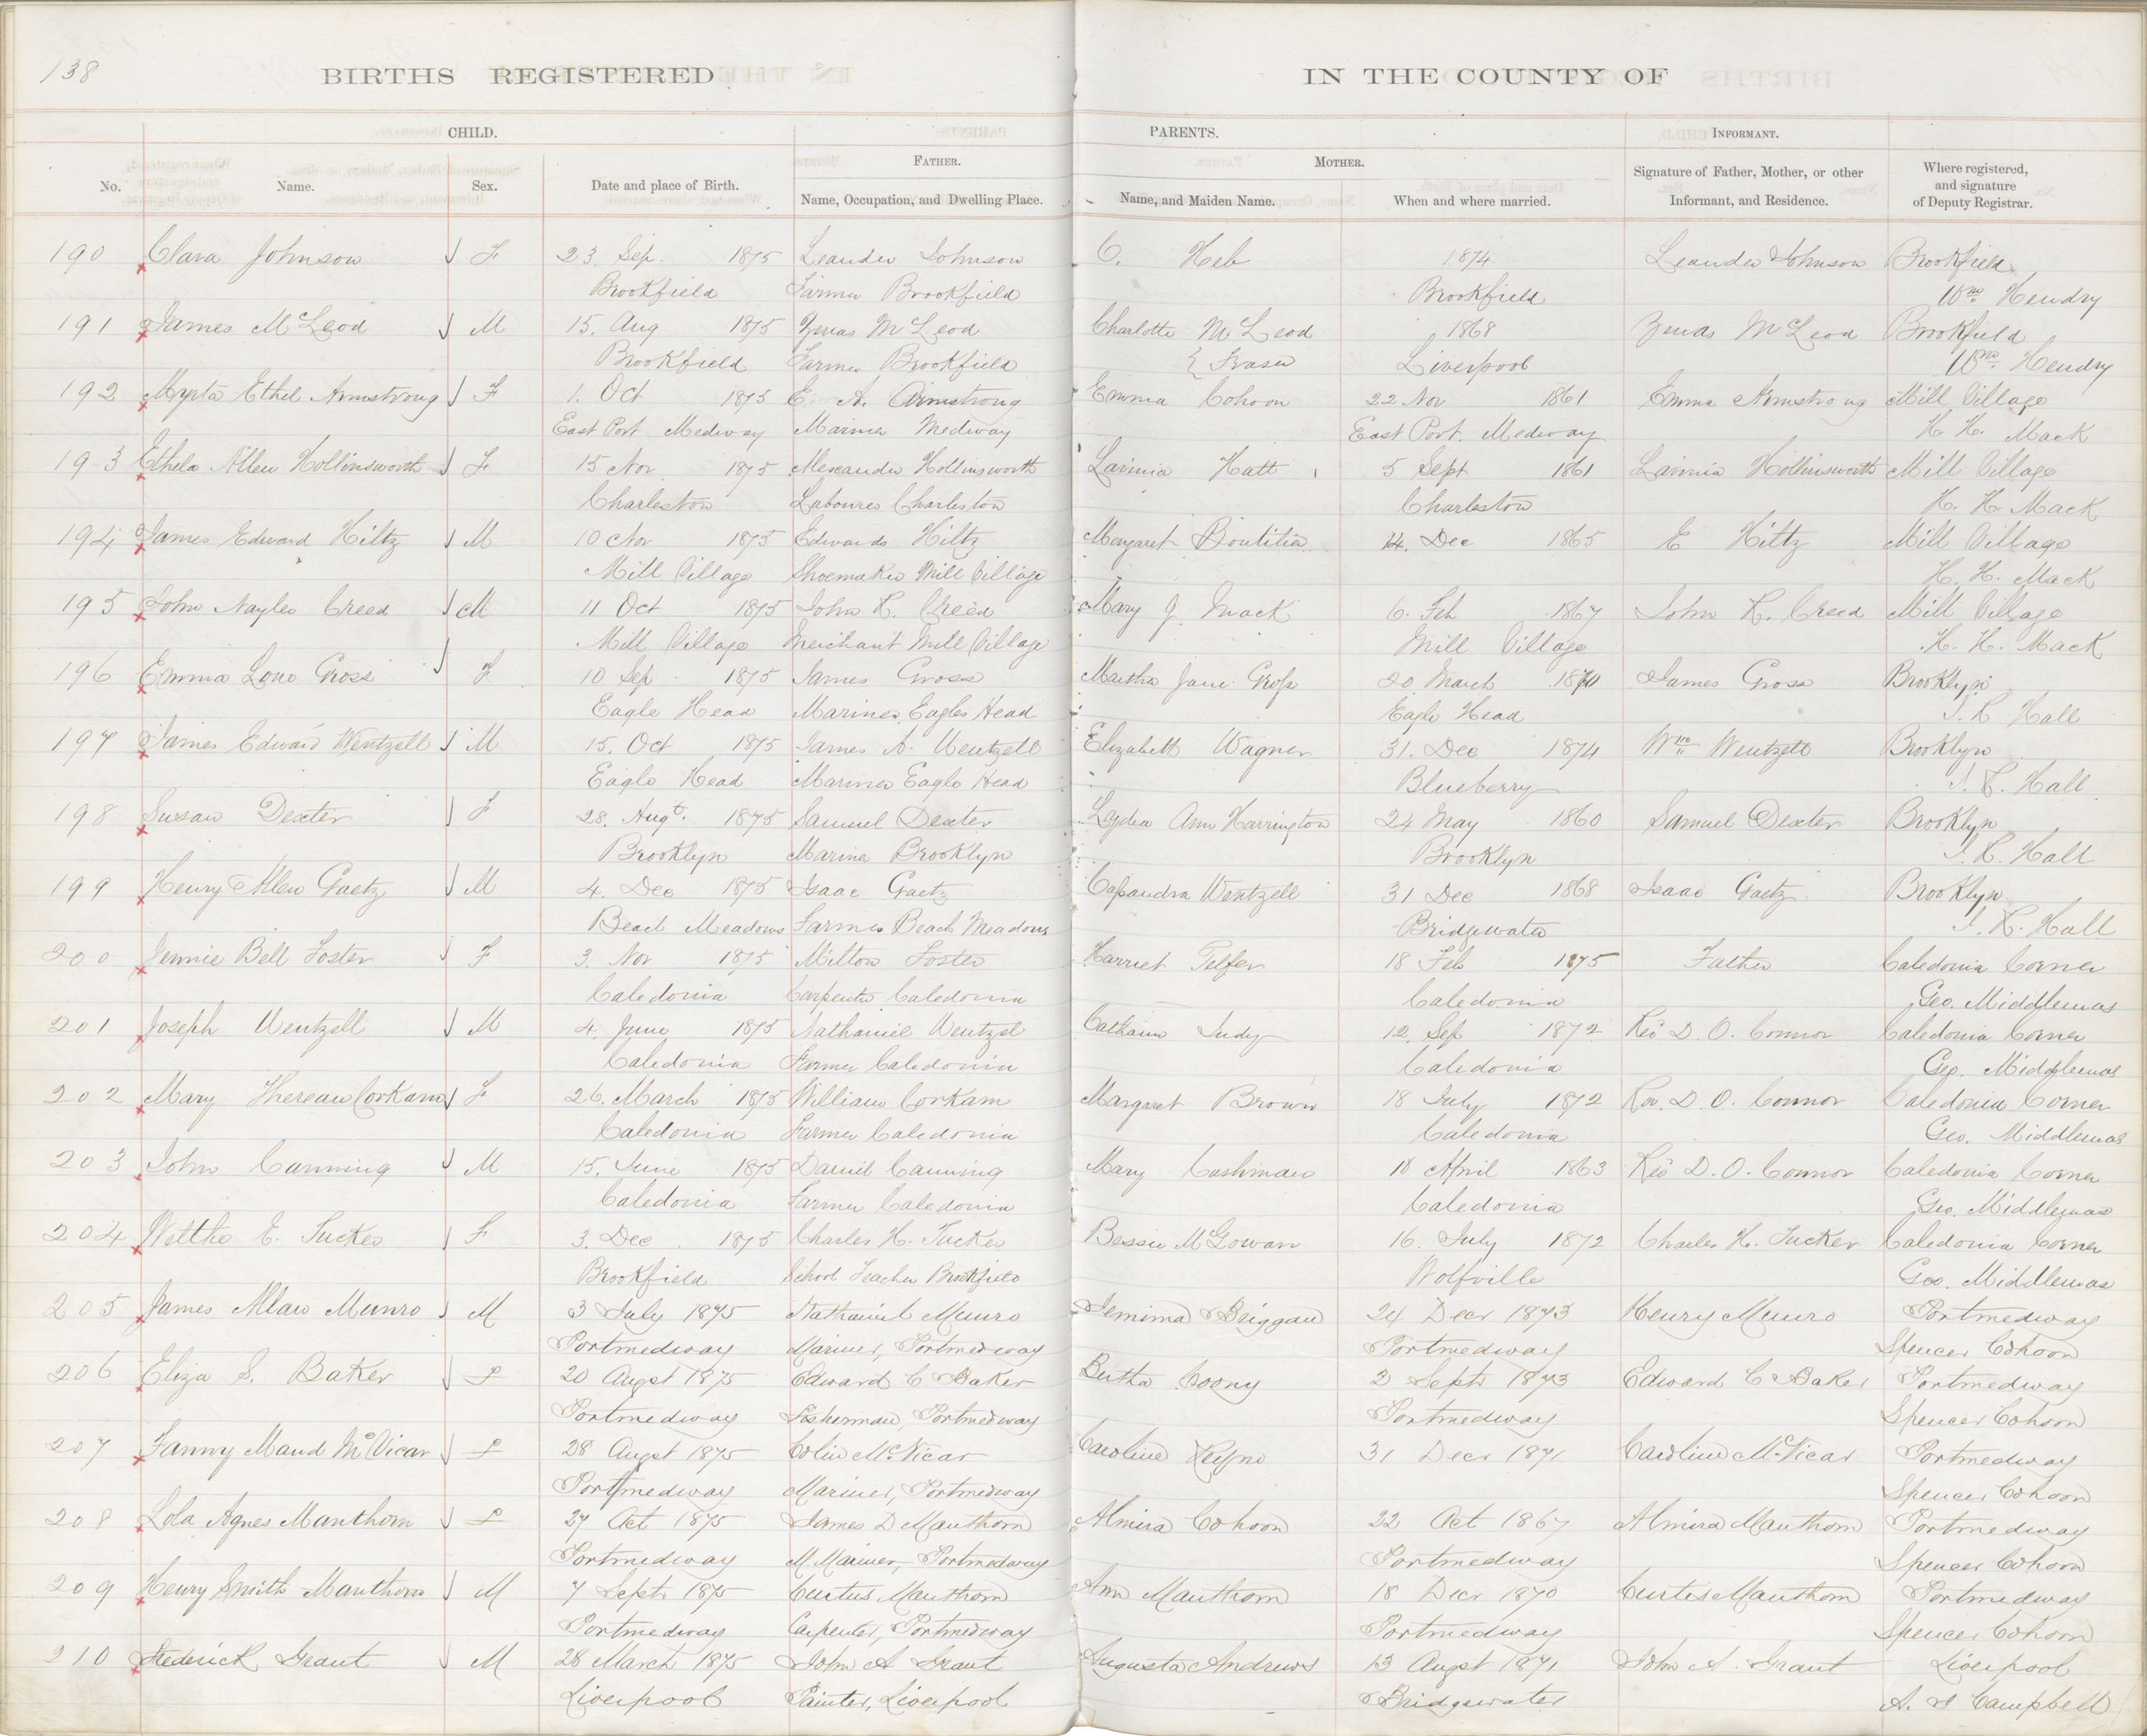 138
BIRTHS REGISTERED IN THE COUNTY OF
CHILD. PARENTS. INFORMANT.
FATHER. MOTHER.
No. Name. Sex. Date and place of Birth. Name, Occupation, and Dwelling Place. Name, and Maiden Name. When and where married. Signature of Father, Mother, or other Informant, and Residence. Where registered, and signature of Deputy Registrar.
190 Clara Johnson F 23. Sep. 1875 Leander Johnson C. Heb 1874 Leander Johnson Brookfield
Brookfield Farmer Brookfield Brookfield Wm Hendry
191 James McLeod M 15. Aug 1875 Zenas McLeod Charlotte McLeod 1868 Zenas McLeod Brookfield
Brookfield Farmer Brookfield } Fraser Liverpool Wm. Hendry
192 Myrta Ethel Armstrong F 1. Oct 1875 E. A. Armstrong Emma Cohoon 22 Nov 1861 Emma Armstrong Mill Village
East Port Medway Mariner Medway East Port. Medway H. H. Mack
193 Ethela Allen Hollinsworth F 15 Nov 1875 Alexander Hollinsworth Lavinia Hatt 5 Sept 1861 Lavinia Hollinsworth Mill Village
Charleston Labourer Charleston Charleston H. H. Mack
194 James Edward Hiltz M 10 Nov 1875 Edwards Hiltz Margaret Boutilier 14. Dec 1865 E Hiltz Mill Village
Mill Village Shoemaker Mill Village H. H. Mack
195 John Nayler Creed M 11 Oct 1875 John R. Creed Mary J. Mack 6. Feb 1867 John R. Creed Mill Village
Mill Village Merchant Mill Village Mill Village H. H. Mack
196 Emma Lono Gross F 10 Sep 1875 James Gross Martha Jane Gross 20 March 1870 James Gross Brooklyn
Eagle Head Mariner Eagle Head Eagle Head J. R Hall
197 James Edward Wentzell M 15. Oct 1875 James A. Wentzell Elizabeth Wagner 31. Dec 1874 Wm Wentzell Brooklyn
Eagle Head Mariner Eagle Head Blueberry J. R. Hall
198 Susan Dexter F 28. Augt. 1875 Samuel Dexter Lydia Ann Harrington 24 May 1860 Samuel Dexter Brooklyn
Brooklyn Mariner Brooklyn Brooklyn J. R. Hall
199 Henry Allen Gaetz M 4. Dec 1875 Isaac Gaetz Cassandra Wentzell 31 Dec 1868 Isaac Gaetz Brooklyn
Beach Meadows Farmer Beach Meadows Bridgewater J. R. Hall
200 Jennie Bell Foster F 3. Nov 1875 Milton Foster Harriet Telfer 18 Feb 1875 Father Caledonia Corner
Caledonia Carpenter Caledonia Caledonia Geo. Middlemas
201 Joseph Wentzell M 4. June 1875 Nathaniel Wentzel Judy 12. Sep 1872 Rev D. O. Connor Caledonia Corner
Caledonia Farmer Caledonia Caledonia Geo. Middlemas
202 Mary Corkam F 26. March 1875 William Corkam Margaret Brown 18 July 1872 Rev. D. O. Connor Caledonia Corner
Caledonia Farmer Caledonia Caledonia Geo. Middlemas
203 John Canning M 15. June 1875 Daniel Canning Mary Cushman 18 April 1863 Rev D. O. Connor Caledonia Corner
Caledonia Farmer Caledonia Caledonia Geo. Middlemas
204 E. Tucker F 3. Dec 1875 Charles H. Tucker Bessie McGowan 16. July 1872 Charles H. Tucker Caledonia Corner
Brookfield School Teacher Brookfield Wolfville Geo. Middlemas
205 James Allan Munro M 3 July 1875 Nathaniel Munro Jemima 24 Decr 1873 Henry Munro Portmedway
Portmedway Mariner, Portmedway Portmedway Spencer Cohoon
206 Eliza S. Baker F 20 Augst 1875 Edward C Baker Bertha Coony 2 Septr 1873 Edward C Baker Portmedway
Portmedway Fisherman, Portmedway Portmedway Spencer Cohoon
207 Fanny Maud McVicar F 28 Augst 1875 Colin McVicar Caroline 31 Decr 1871 Caroline McVicar Portmedway
Portmedway Mariner, Portmedway Spencer Cohoon
208 Lola Agnes Manthorn F 27 Oct 1875 James D Manthorn Almira Cohoon 22 Oct 1867 Almira Manthorn Portmedway
Portmedway M. Mariner, Portmedway Portmedway Spencer Cohoon
209 Henry Smith Manthorn M 7 Septr 1875 Curtus Manthorn Ann Manthorn 18 Decr 1870 Curtis Manthorn Portmedway
Portmedway Carpenter, Portmedway Portmedway Spencer Cohoon
210 Frederick Grant M 28 March 1875 John A Grant Augusta Andrews 13 Augst 1871 John A. Grant Liverpool
Liverpool Painter, Liverpool Bridgewater A. J Campbell